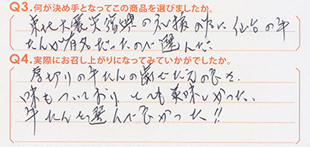 Q3.何が決め手となってこの商品を選びましたか。
東北大震災復興の
仙台の牛
たんが有名だったので選んだ。
Q4.実際にお召し上がりになってみていかがでしたか。
厚切りの牛たんの
味もついており とても美味しかった。
牛たんを選んで良かった!!